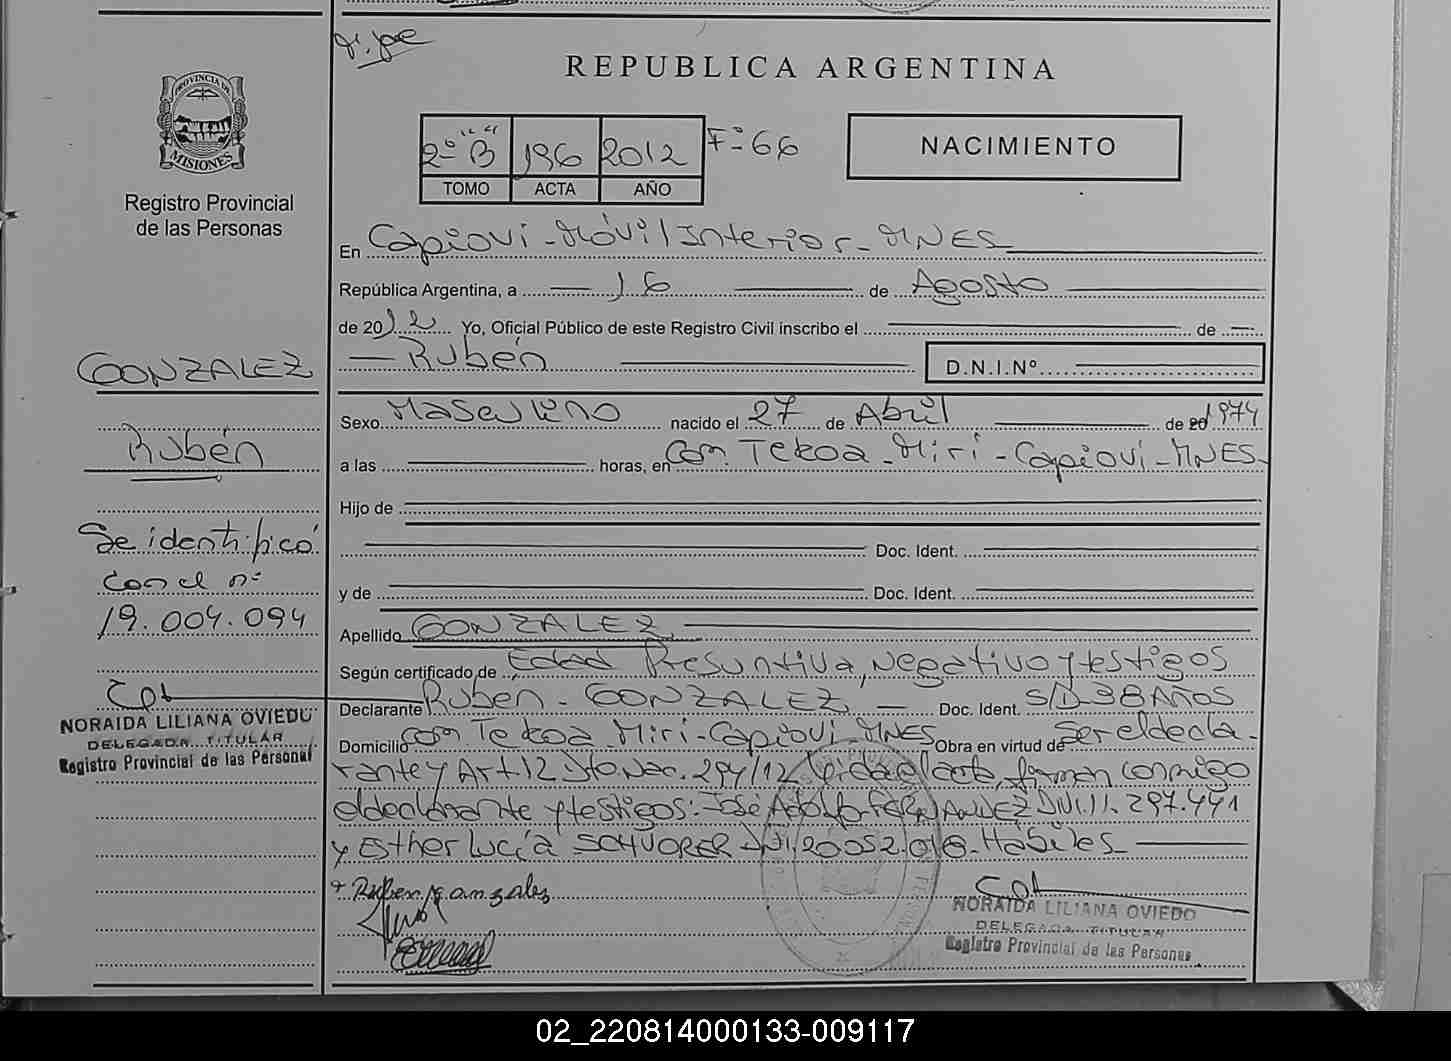 REPUBLICA ARGENTINA
PROVINCIA DE
MISIONES
Registro Provincial
de las Personas
2º "B" 196 2012 Fº 66
TOMO ACTA AÑO
NACIMIENTO
En Capiovi - Móvil Interior - MNES
República Argentina, a 16 de Agosto
de 2012 Yo, Oficial Público de este Registro Civil inscribo el de
Rubén D.N.I.Nº
Sexo Masculino nacido el 27 de Abril de 20 1974
a las horas, en Com. Tekoa - Miri - Capiovi - MNES -
Hijo de
Doc. Ident.
y de Doc. Ident.
Apellido GONZALEZ
Según certificado de Edad Presuntiva, Negativo y testigos
Declarante Rubén - GONZALEZ - Doc. Ident. S/D - 38 AÑOS
Domicilio Com Tekoa Miri - Capiovi - MNES Obra en virtud de Ser el decla-
rante y Art. 12 Dto. Nac. 294/12 Leida el acta, firman conmigo
el declarante y testigos: José Adolfo FERNANDEZ DNI. 11.297.441
y Esther Lucía SCHVORER DNI. 20052.016. Hábiles
Ruben gonzales
NORAIDA LILIANA OVIEDO
DELEGADA TITULAR
Registro Provincial de las Personas
GONZALEZ
Rubén
Se identificó
con el nº
19.004.094
NORAIDA LILIANA OVIEDO
DELEGADA TITULAR
Registro Provincial de las Personas
02_220814000133-009117